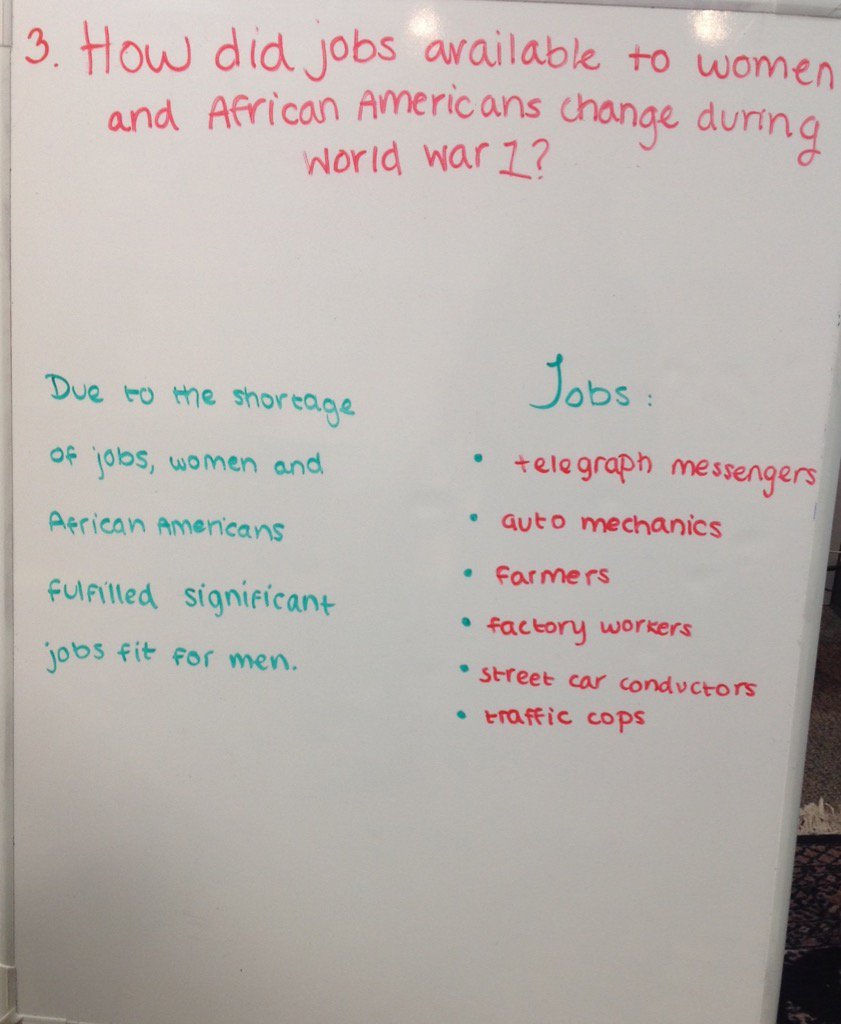 3. How did jobs available to women
and African Americans change during
World War 1?
Due to the shortage
of jobs, women and
African Americans
fulfilled significant
jobs fit for men.
Jobs:
• telegraph messengers
• auto mechanics
• farmers
• factory workers
• street car conductors
• traffic cops